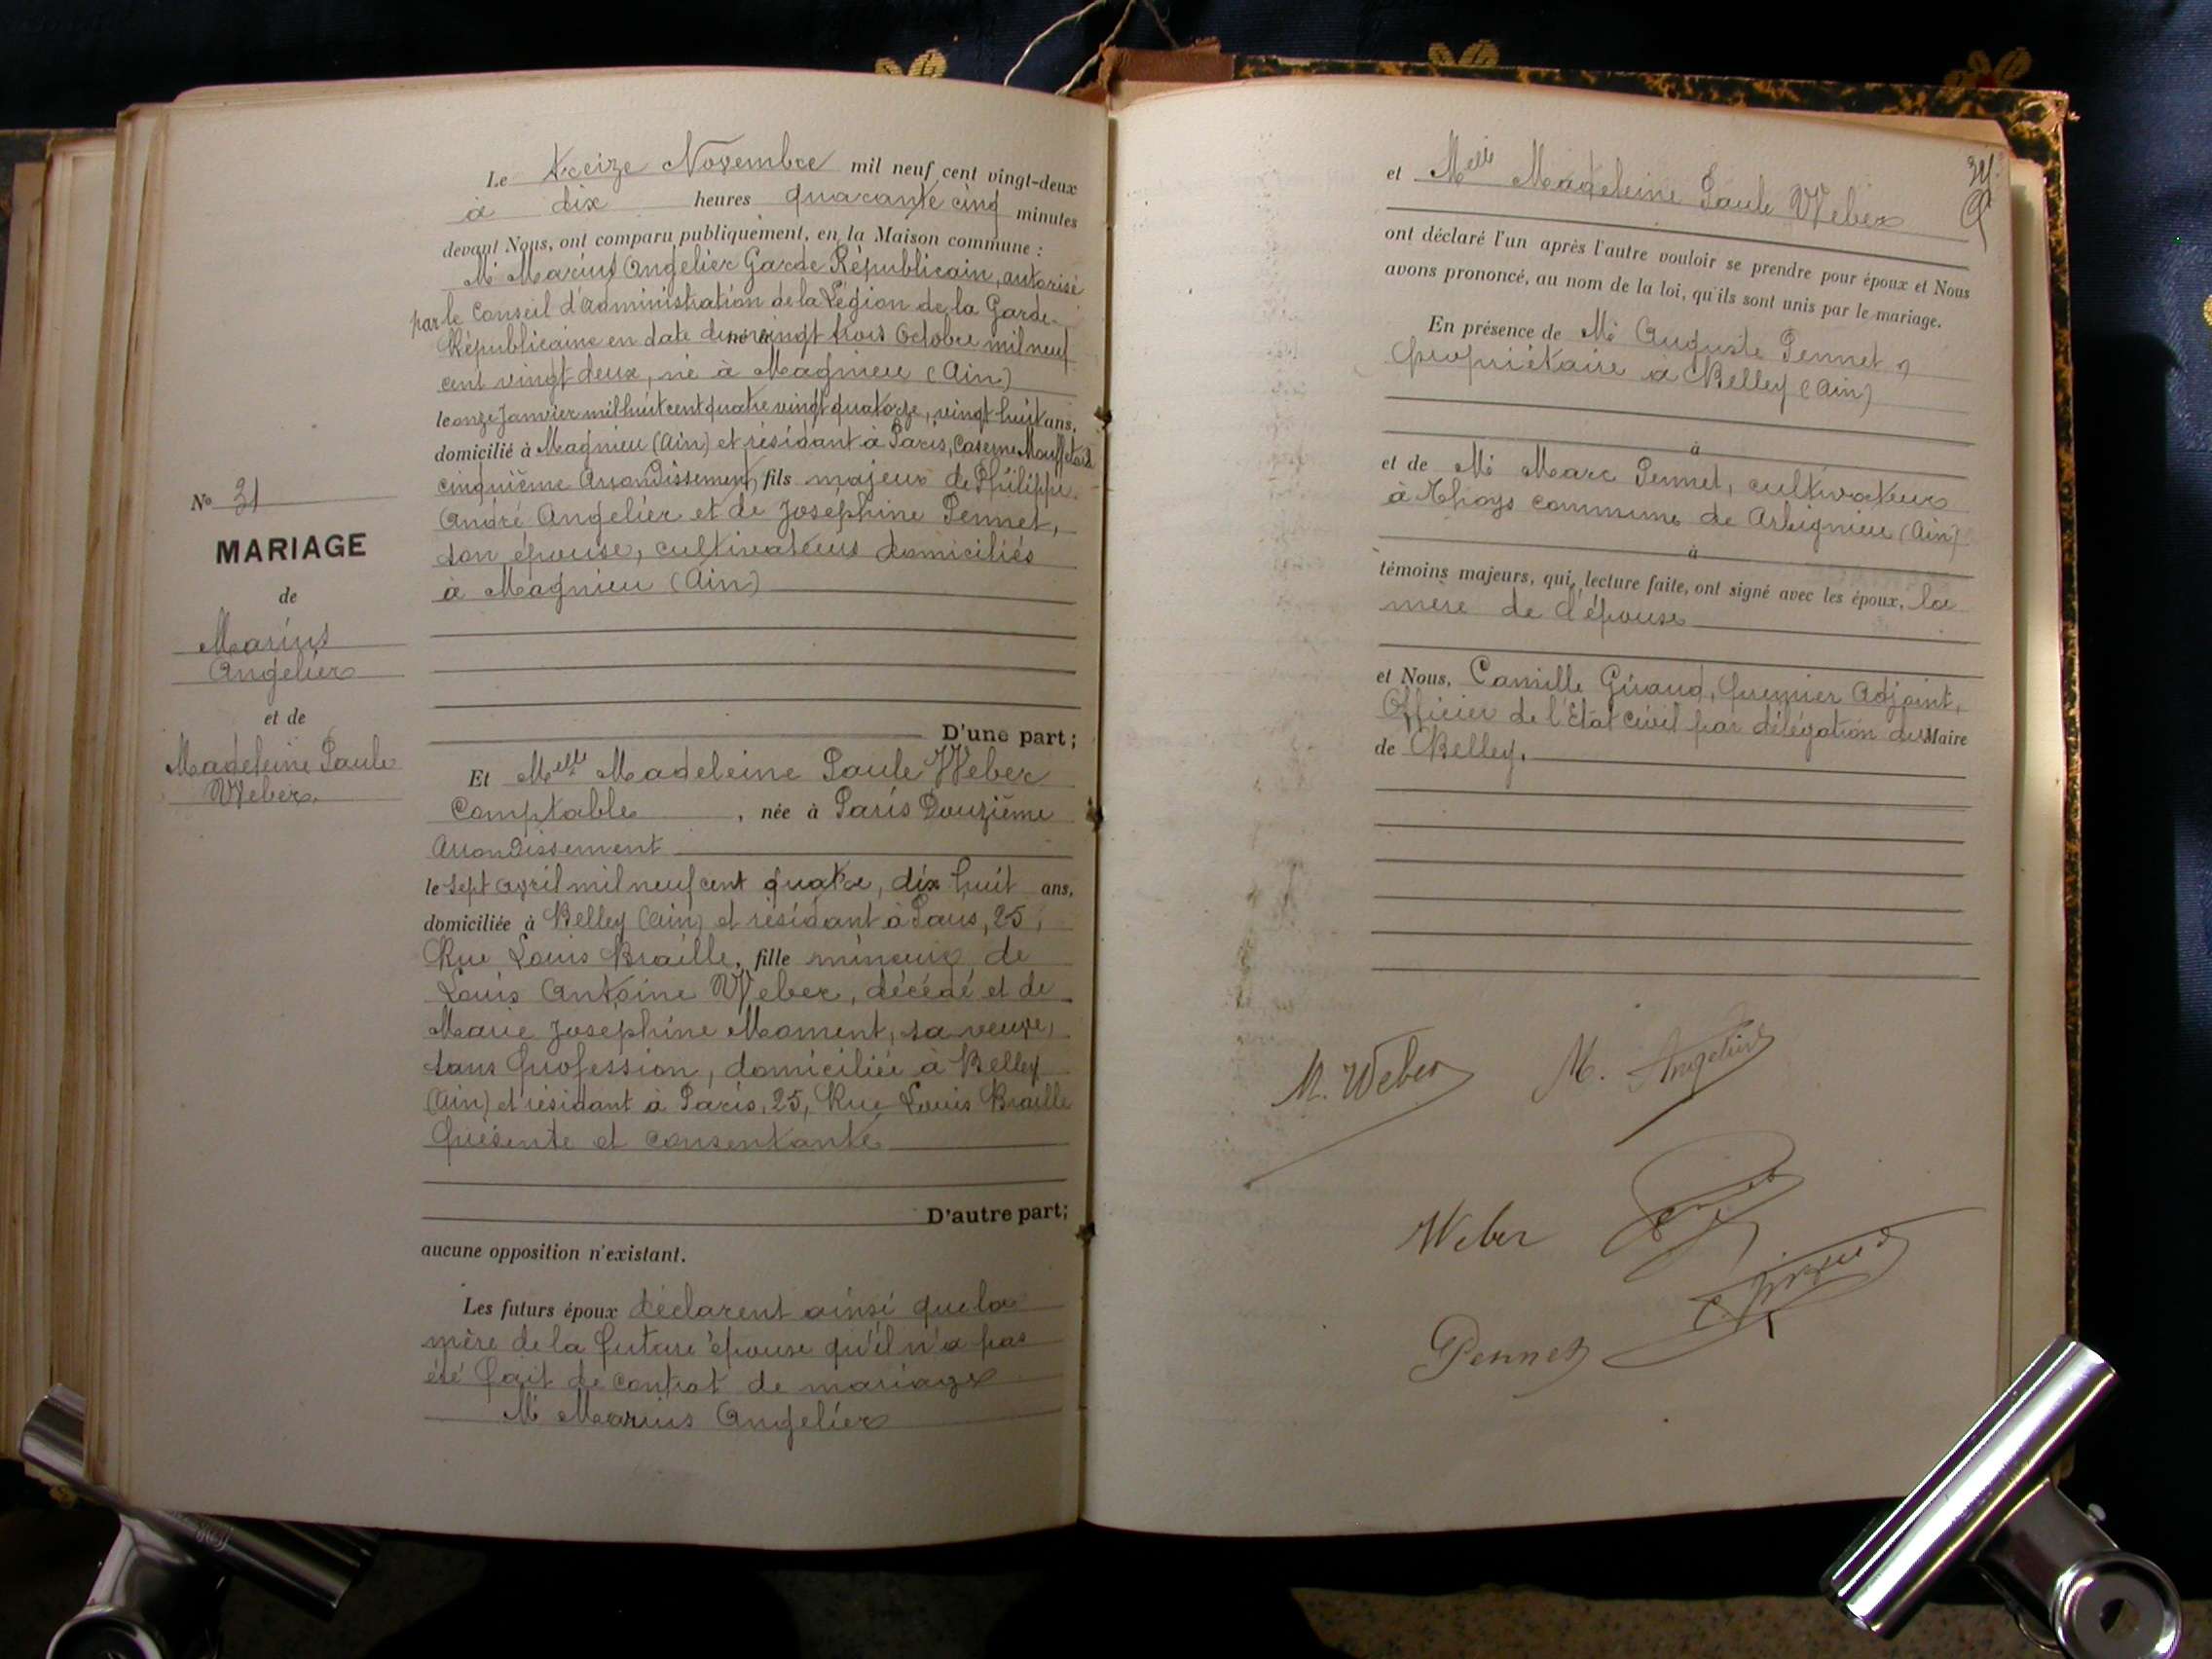 Le treize Novembre mil neuf cent vingt-deux
à dix heures quarante cinq minutes
devant Nous, ont comparu publiquement, en la Maison commune :
Mr Marius Angelier Garde Républicain, autorisé
par le Conseil d'administration de la Légion de la Garde
Républicaine en date du vingt trois Octobre mil neuf
cent vingt deux, né à Magnieu (Ain)
le onze Janvier mil huit cent quatre vingt quatorze, vingt huit ans,
domicilié à Magnieu (Ain) et résidant à Paris, Caserne Mouffetard
cinquième Arrondissement, fils majeur de Philippe
André Angelier et de Joséphine Pennet,
son épouse, cultivateurs domiciliés
à Magnieu (Ain)
D'une part;
N° 31
MARIAGE
de
Marius
Angelier
et de
Madeleine Paule
Weber
Et Melle Madeleine Paule Weber
Comptable, née à Paris Douzième
Arrondissement
le sept avril mil neuf cent quatre, dix huit ans,
domiciliée à Belley (Ain) et résidant à Paris, 25,
Rue Louis Braille, fille mineure de
Louis Antoine Weber, décédé et de
Marie Josephine Moment, sa veuve,
sans profession, domiciliée à Belley
(Ain) et résidant à Paris, 25, Rue Louis Braille
présente et consentante
D'autre part;
aucune opposition n'existant.
Les futurs époux déclarent ainsi que la
mère de la future épouse qu'il n'a pas
été fait de contrat de mariage
Mr Marius Angelier
34
et Melle Madeleine Paule Weber
ont déclaré l'un après l'autre vouloir se prendre pour époux et Nous
avons prononcé, au nom de la loi, qu'ils sont unis par le mariage.
En présence de Mr Auguste Pennet,
propriétaire à Belley (Ain)
à
et de Mr Marc Pennet, cultivateur
à Thoys commune de Arbignieu (Ain)
à
témoins majeurs, qui, lecture faite, ont signé avec les époux, la
mère de l'épouse
et Nous, Camille Giraud, premier Adjoint,
Officier de l'Etat civil par délégation du Maire
de Belley.
M. Weber M. Angelier
Weber
C. Giraud
Pennet